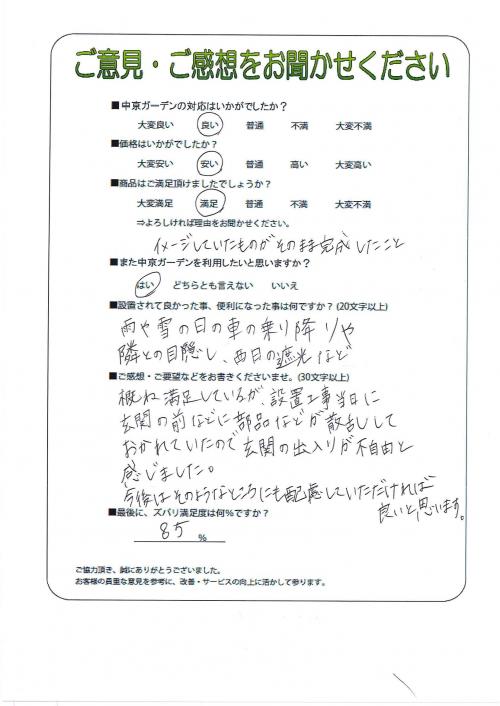 ご意見・ご感想をお聞かせください
■中京ガーデンの対応はいかがでしたか？
大変良い 良い 普通 不満 大変不満
■価格はいかがでしたか？
大変安い 安い 普通 高い 大変高い
■商品はご満足頂けましたでしょうか？
大変満足 満足 普通 不満 大変不満
⇒よろしければ理由をお聞かせください。
イメージしていたものがそのまま完成したこと
■また中京ガーデンを利用したいと思いますか？
はい どちらとも言えない いいえ
■設置されて良かった事、便利になった事は何ですか？(20文字以上)
雨や雪の日の車の乗り降りや
隣との目隠し、西日の遮光など
■ご感想・ご要望などをお書きくださいませ。(30文字以上)
概ね満足しているが、設置工事当日に
玄関の前などに部品などが散乱して
おかれていたので玄関の出入りが不自由と
感じました。
今後はそのようなところにも配慮していただければ
良いと思います。
■最後に、ズバリ満足度は何％ですか？
85 %
ご協力頂き、誠にありがとうございました。
お客様の貴重な意見を参考に、改善・サービスの向上に活かして参ります。